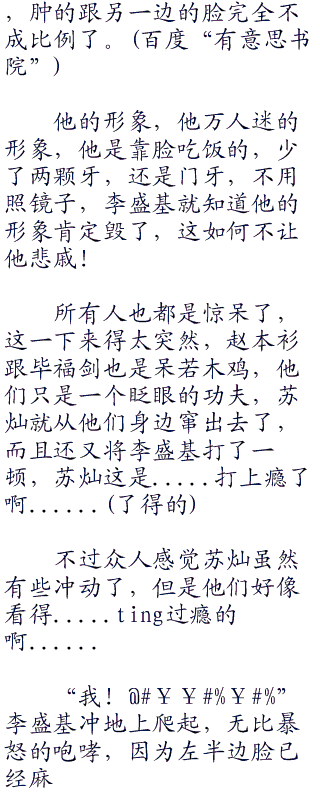 ，肿的跟另一边的脸完全不
成比例了。(百度“有意思书
院”)
他的形象，他万人迷的
形象，他是靠脸吃饭的，少
了两颗牙，还是门牙，不用
照镜子，李盛基就知道他的
形象肯定毁了，这如何不让
他悲戚！
所有人也都是惊呆了，
这一下来得太突然，赵本衫
跟毕福剑也是呆若木鸡，他
们只是一个眨眼的功夫，苏
灿就从他们身边窜出去了，
而且还又将李盛基打了一
顿，苏灿这是.....打上瘾了
啊......(了得的)
不过众人感觉苏灿虽然
有些冲动了，但是他们好像
看得.....ting过瘾的
啊......
“我！@#￥￥#%￥#%”
李盛基冲地上爬起，无比暴
怒的咆哮，因为左半边脸已
经麻